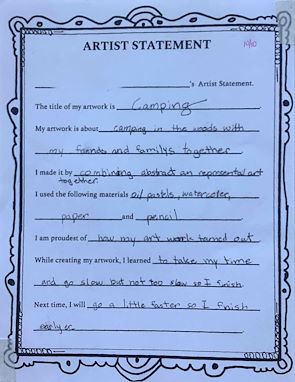 ARTIST STATEMENT
10/10
's Artist Statement.
The title of my artwork is Camping.
My artwork is about camping in the woods with
my friends and familys together.
I made it by combining abstract an reprosental art
together.
I used the following materials oil pastels, watercolor,
paper and pencil.
I am proudest of how my art work turned out.
While creating my artwork, I learned to take my time
and go slow but not too slow so I finish.
Next time, I will go a little faster so I finish
earlyer.